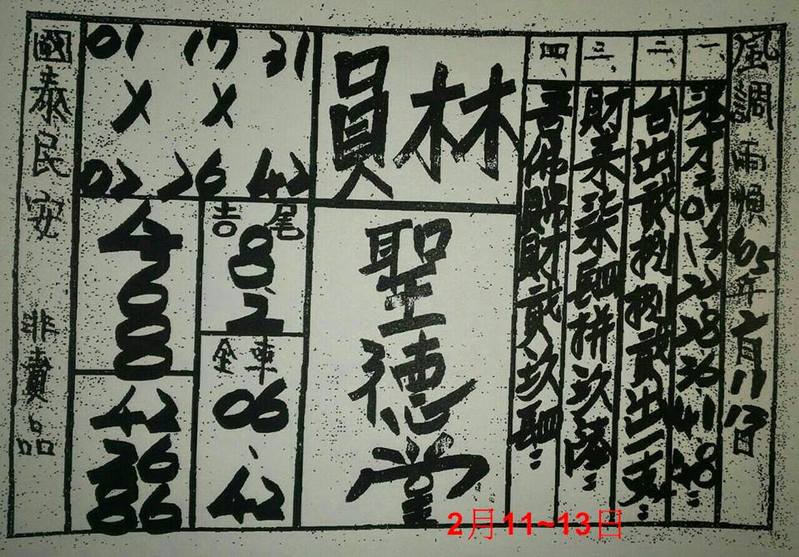 風調雨順 105年二月11 13日
一、 01.22.28.36.41.48:
二、台出貳捌捌貳出一支:
三、財來柒肆拼玖陸:
四、善佛賜財貳玖肆:
林員
聖德堂
01 17 31
X X
02 26 42
尾吉
8.2
車全
06、42
4000
42
26
86
國泰民安 非賣品
2月11~13日